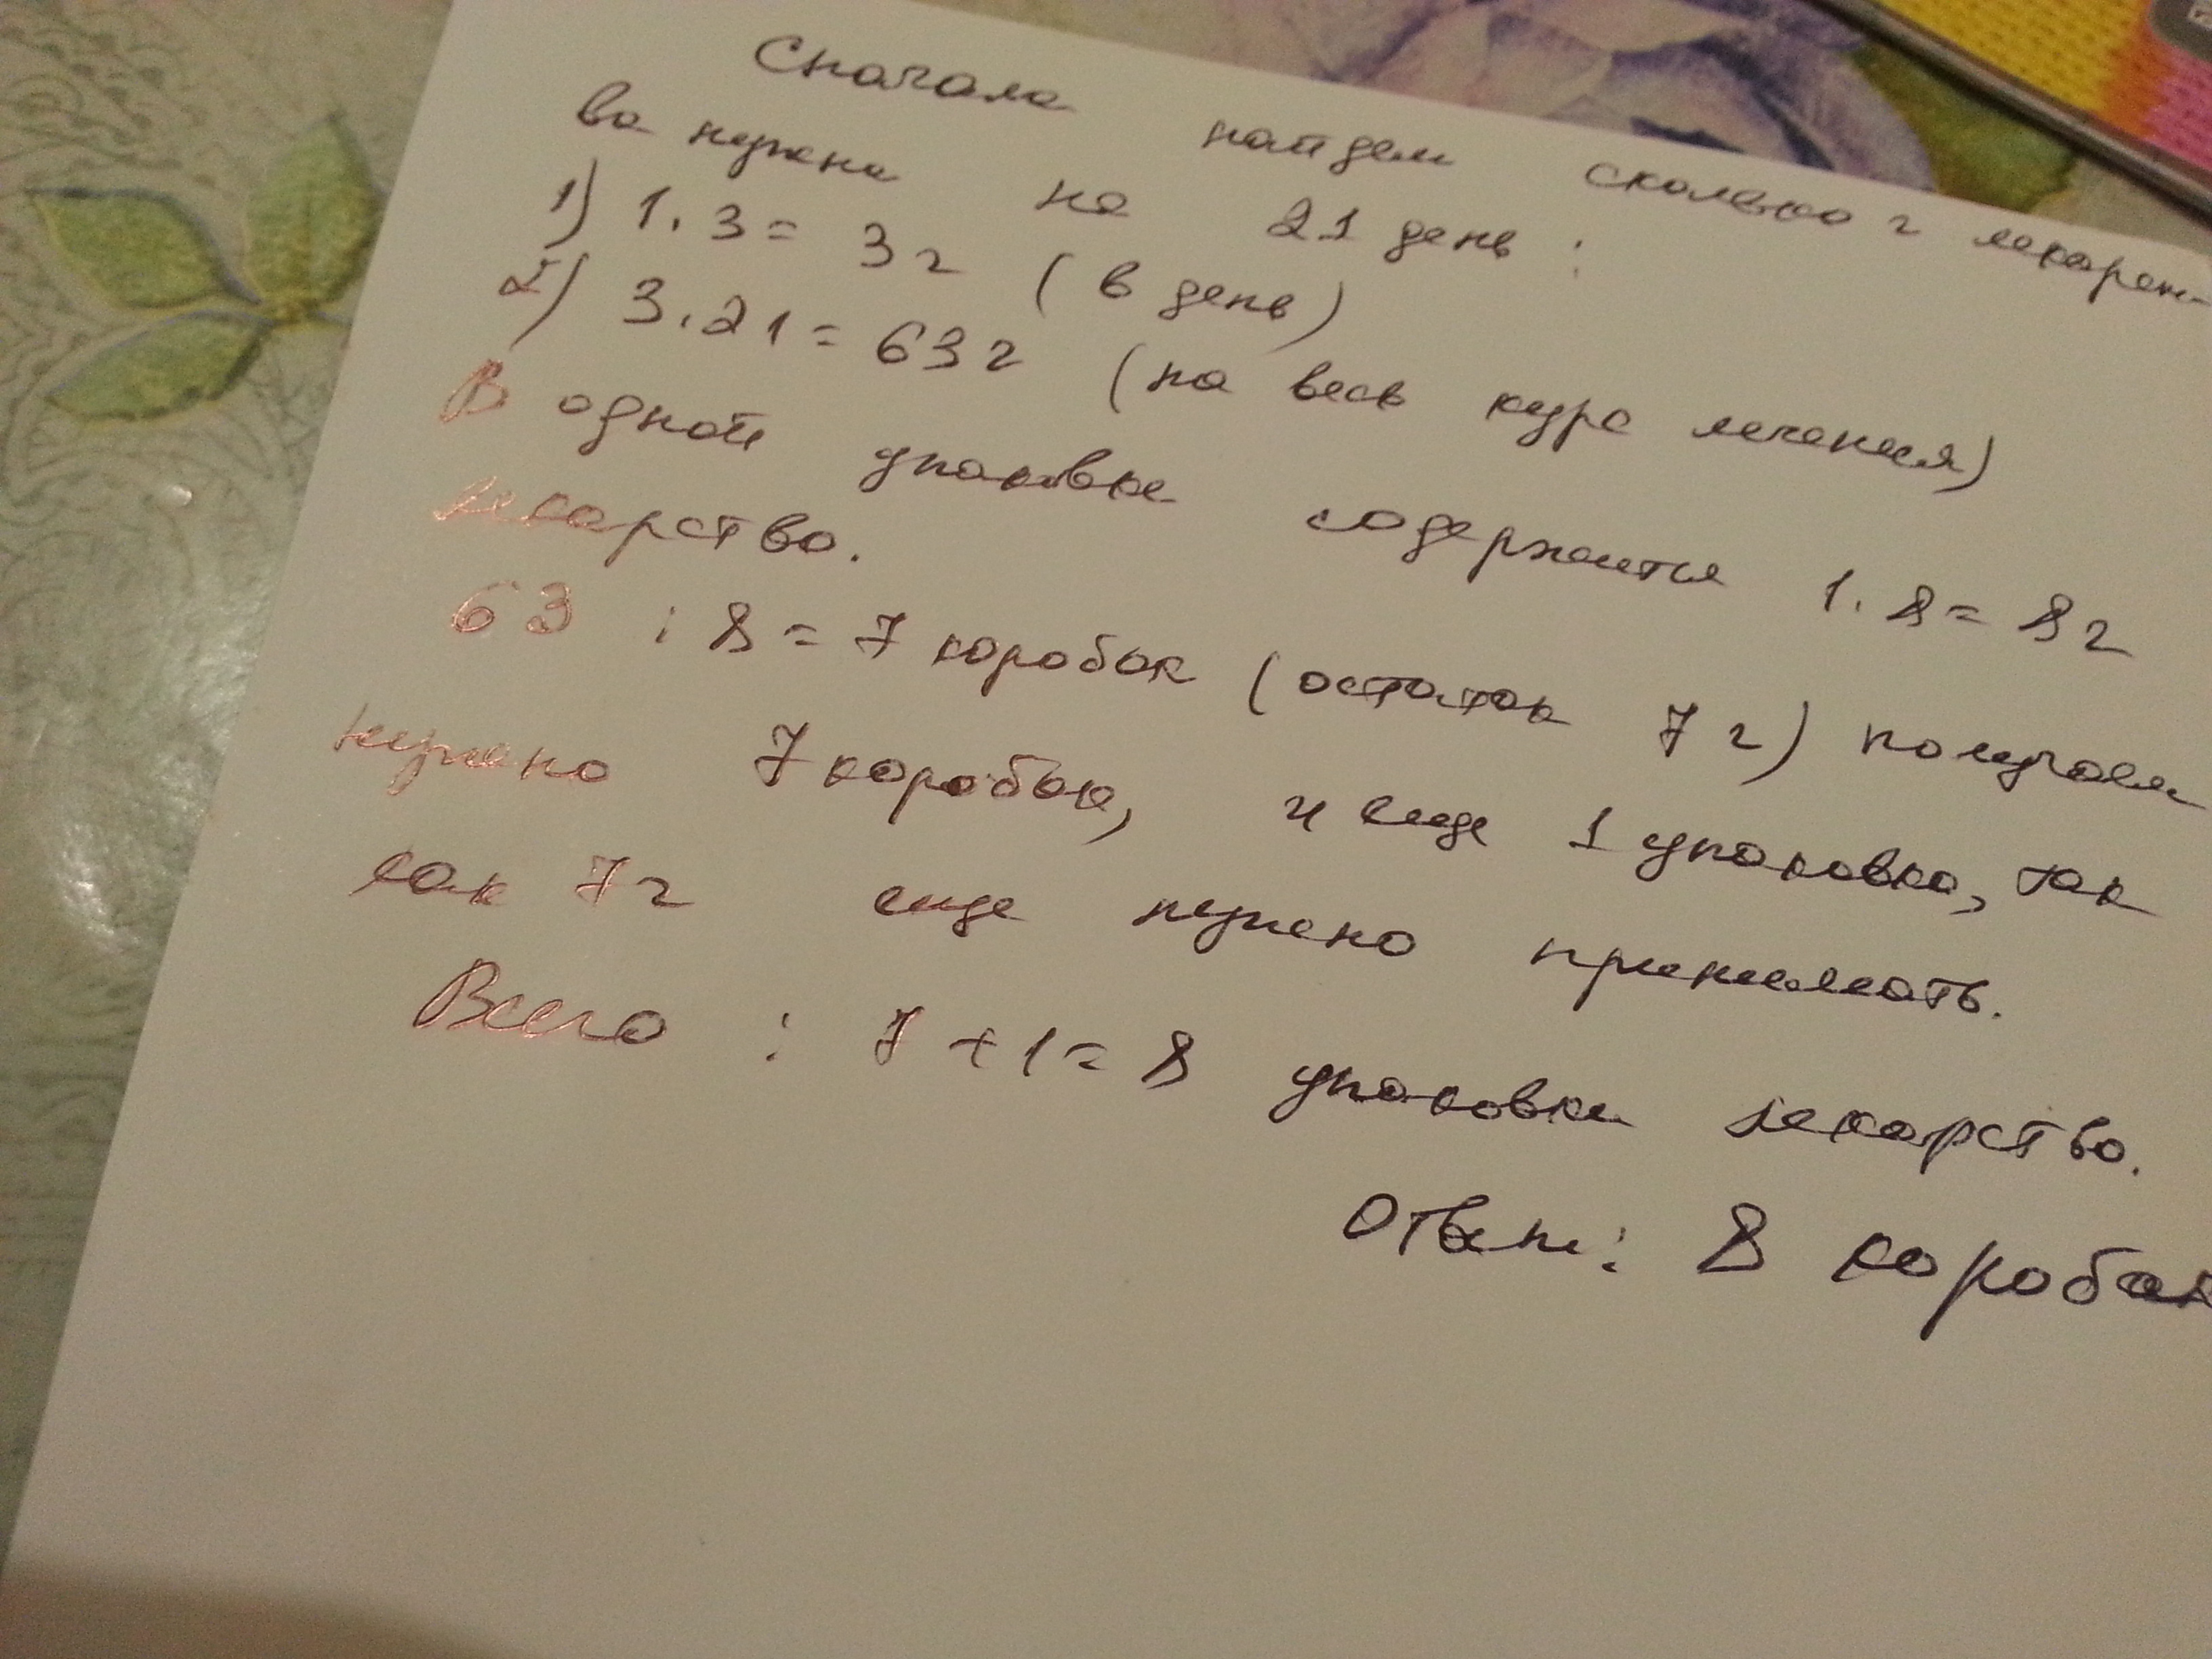 Сначала найдем сколько г лекарст-
ва нужно на 21 день:
1) 1.3= 3г (в день)
2) 3.21= 63г (на весь курс лечения)
В одной упаковке содержится 1.8= 8г
лекарство.
63 : 8 = 7 коробок (остаток 7г) получаем
нужно 7 коробок, и еще 1 упаковка, так
как 7г еще нужно принимать.
Всего : 7+1= 8 упаковки лекарство.
Ответ: 8 коробок